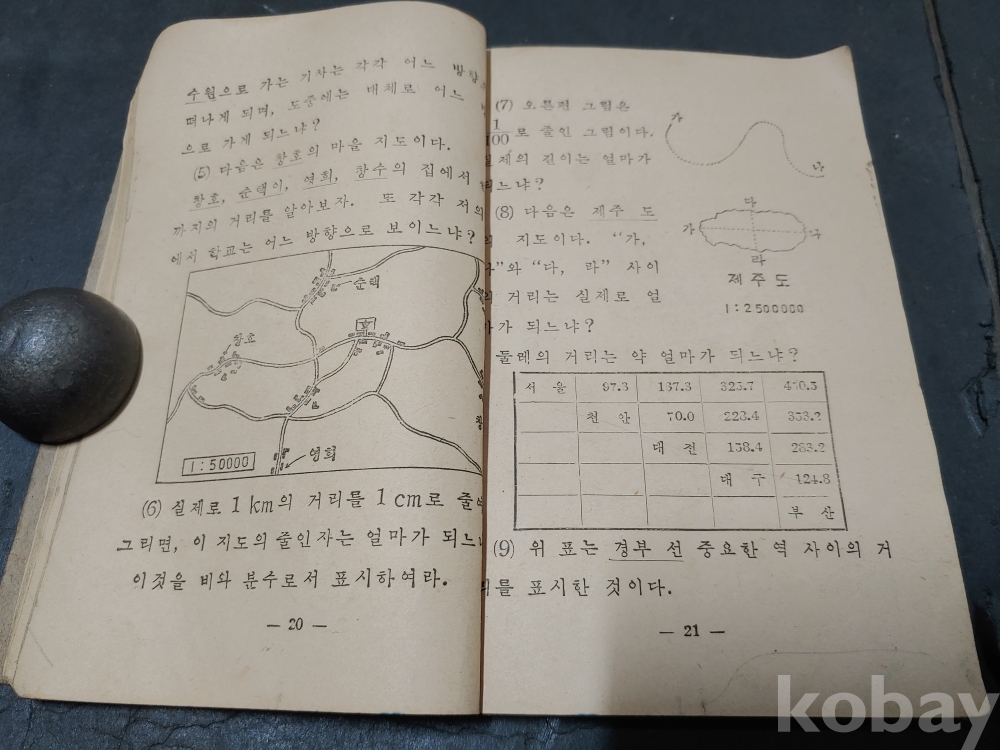 수원으로 가는 기차는 각각 어느 방향
떠나게 되며, 도중에는 대체로 어느
으로 가게 되느냐?
(5) 다음은 창호의 마을 지도이다.
창호, 순택이, 영희, 창수의 집에서
까지의 거리를 알아보자. 또 각각 저의
에서 학교는 어느 방향으로 보이느냐?
순택
창호
영희
1:50000
(6) 실제로 1 km의 거리를 1 cm로 줄여
그리면, 이 지도의 줄인자는 얼마가 되느냐
이것을 비와 분수로서 표시하여라.
— 20 —
(7) 오른편 그림은
1/100로 줄인 그림이다.
실제의 길이는 얼마가
되느냐?
가
나
(8) 다음은 제주 도
의 지도이다. “가,
나”와 “다, 라” 사이
의 거리는 실제로 얼
마가 되느냐?
다
가
라
제주도
1:2500000
둘레의 거리는 약 얼마가 되느냐?
서 울 97.3 167.3 325.7
천 안 70.0 228.4 353.2
대 전 158.4 283.2
대 구 124.8
부 산
(9) 위 표는 경부 선 중요한 역 사이의 거
리를 표시한 것이다.
— 21 —
kobay